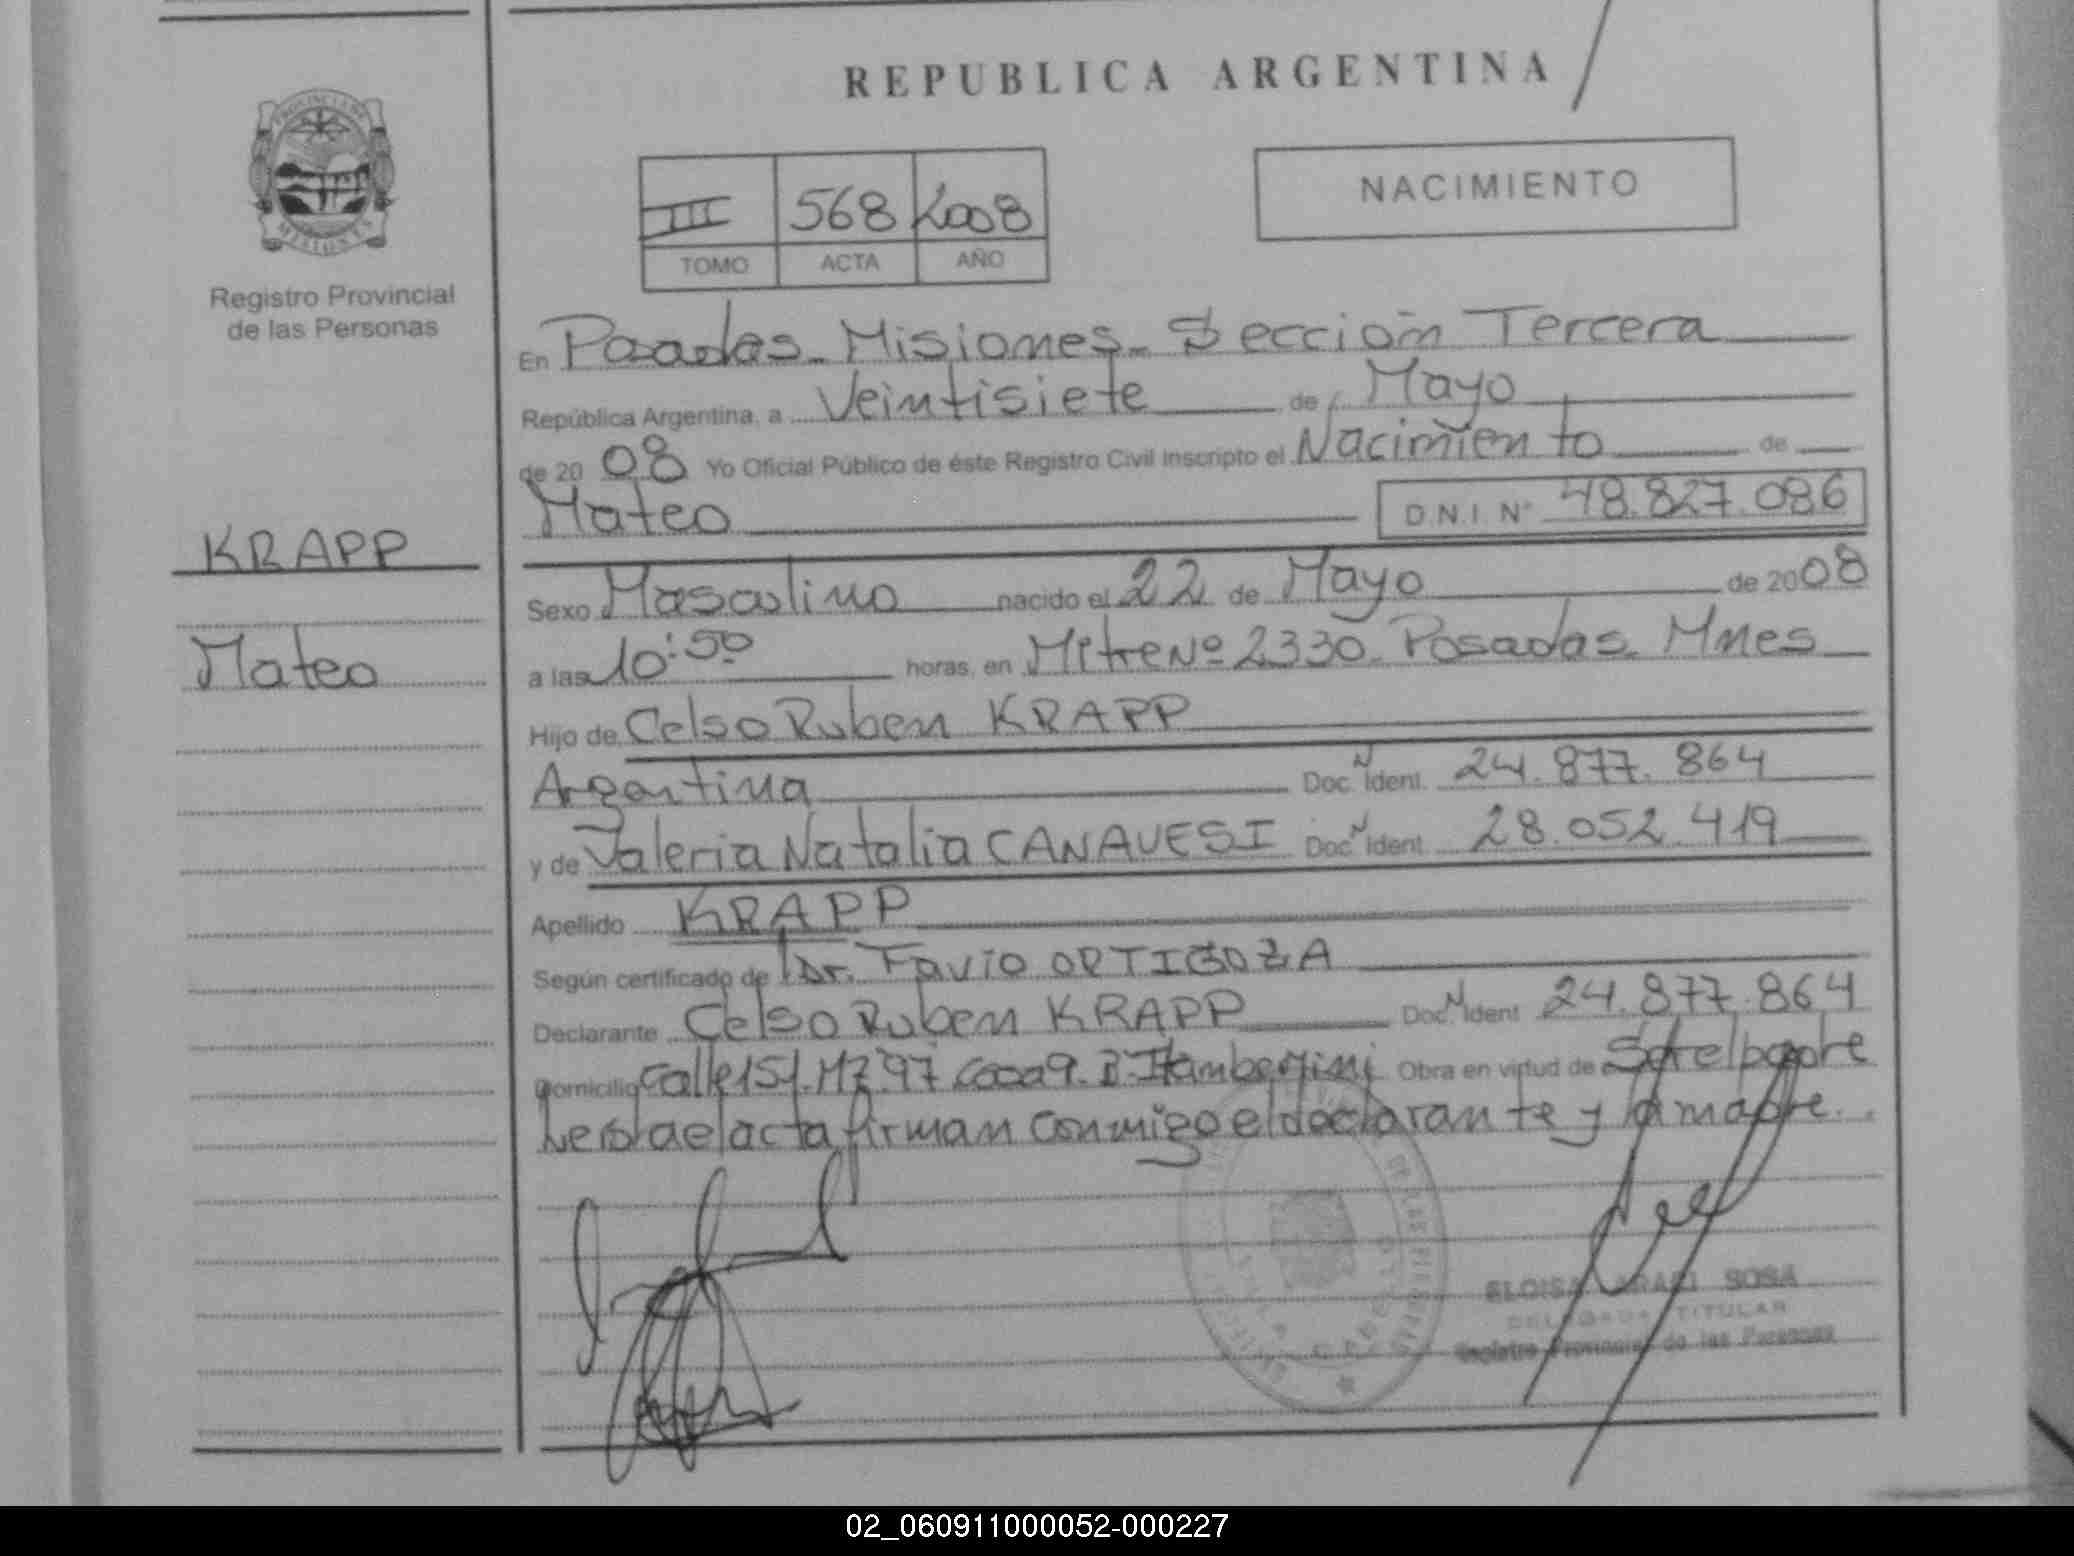 REPUBLICA ARGENTINA
NACIMIENTO
III 568 2008
TOMO ACTA AÑO
Registro Provincial
de las Personas
KRAPP
Mateo
En Posadas - Misiones - Sección Tercera
República Argentina, a Veintisiete de Mayo
de 2008 Yo Oficial Público de éste Registro Civil inscripto el Nacimiento de
Mateo D.N.I. Nº 48.827.086
Sexo Masculino nacido el 22 de Mayo de 2008
a las 10:50 horas, en Mitre Nº 2330. Posadas. Mnes
Hijo de Celso Ruben KRAPP
Argentina Doc. N Ident. 24.877.864
y de Valeria Natalia CANAVESI Doc. N Ident 28.052.419
Apellido KRAPP
Según certificado de Dr. Favio ORTIGOZA
Declarante Celso Ruben KRAPP Doc. N Ident 24.877.864
Domicilio Calle 151. MZ 97 Casa 9. B. Obra en virtud de Ser el padre
acta firman conmigo el declarante y la madre.
ELOISA ARACI SOSA
DELEGADA TITULAR
Registro Provincial de las Personas
02_060911000052-000227